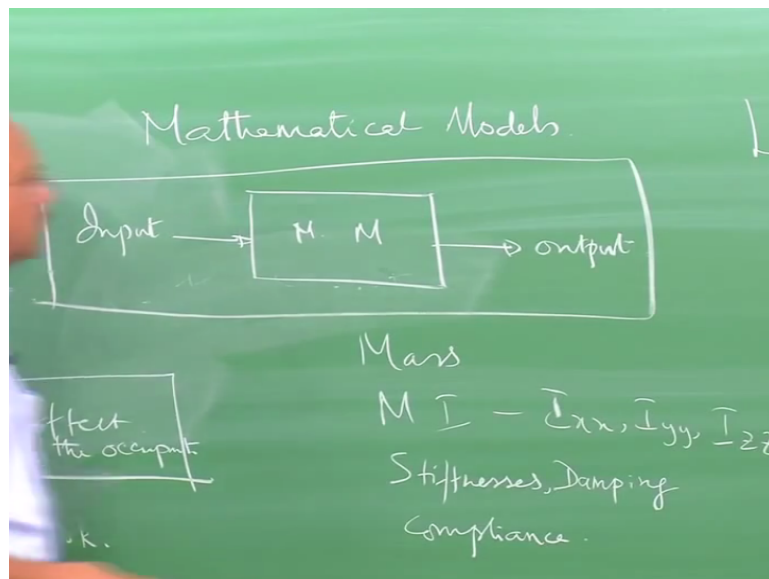 Mathematical Models.
Input → M. M → output
Mass
M I - Ixx, Iyy, Izz
Stiffnesses, Damping
Compliance.
the occupnt